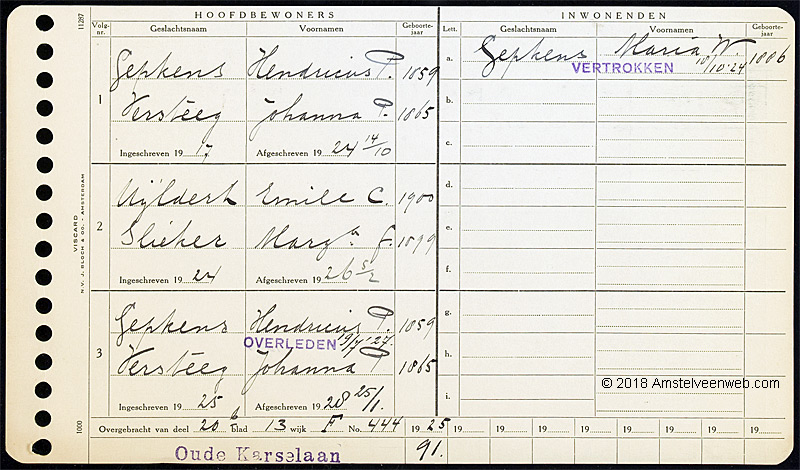 HOOFDBEWONERS INWONENDEN
Volg-nr. Geslachtsnaam Voornamen Geboorte-jaar Lett. Geslachtsnaam Voornamen Geboorte-jaar
1 Gepkens Hendricus P. 1859 a. Gepkens Maria W. 1886
VERTROKKEN 10/10'24
Versteeg Johanna P. 1865 b.
c.
Ingeschreven 19 17 Afgeschreven 19 24 14/10
2 Emile C. 1900 d.
Slieker Marg.a J. 1899 e.
f.
Ingeschreven 19 24 Afgeschreven 19 26 5/2
3 Gepkens Hendricus P. 1859 g.
OVERLEDEN 19/7 '27.
Versteeg Johanna P 1865 h.
Ingeschreven 19 25 Afgeschreven 19 28 25/1. i.
© 2018 Amstelveenweb.com
Overgebracht van deel 20 b blad 13 wijk F No. 444 19 25 19 19 19 19 19 19 19 19
Oude Karselaan 91.
11287
VISCARD
N.V. J. BLOCH & CO. - AMSTERDAM
1000